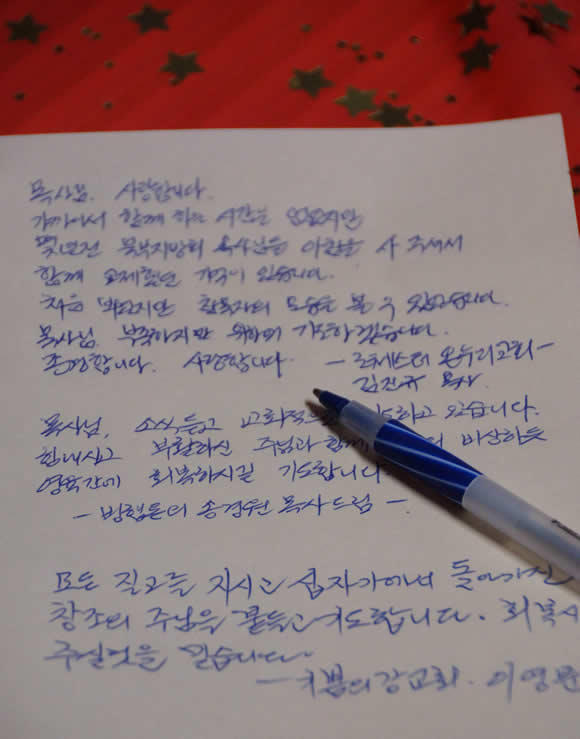 목사님. 사랑합니다.
가까이서 함께 하는 시간은 없었지만
몇년전 북부지방회 목사님들 아침을 사 주셔서
함께 교제했던 기억이 있습니다.
처음 뵈었지만 참목자의 모습을 볼 수 있었습니다.
목사님. 부족하지만 위하여 기도하겠습니다.
존경합니다. 사랑합니다. - 로체스터 온누리교회 -
김진규 목사.
목사님, 소식듣고 교회적으로 기도하고 있습니다.
힘내시고 부활하신 주님과 함께 비상하듯
영육간에 회복하시길 기도합니다
- 빙햄튼에서 송경원 목사드림 -.
모든 질고를 지시고 십자가에서 돌아가신
창조의 주님을 붙들고 기도합니다. 회복시
주실것을 믿습니다.
- 기쁨의강교회. 이영